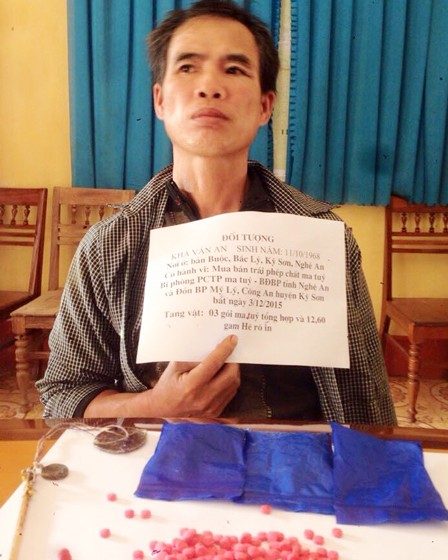 ĐỐI TƯỢNG
KHA VĂN AN SINH NĂM: 11/10/1968
Nơi ở: bản Buộc, Bảc Lý, Kỳ Sơn, Nghệ An
Có hành vi: Mua bán trái phép chất ma tuý
Bị phòng PCTP ma tuý - BĐBP tỉnh Nghệ An
và Đồn BP Mỹ Lý, Công An huyện Kỳ Sơn
bắt ngày 3/12/2015
Tang vật: 03 gói ma tuý tổng hợp và 12,60
gam Hê rô in